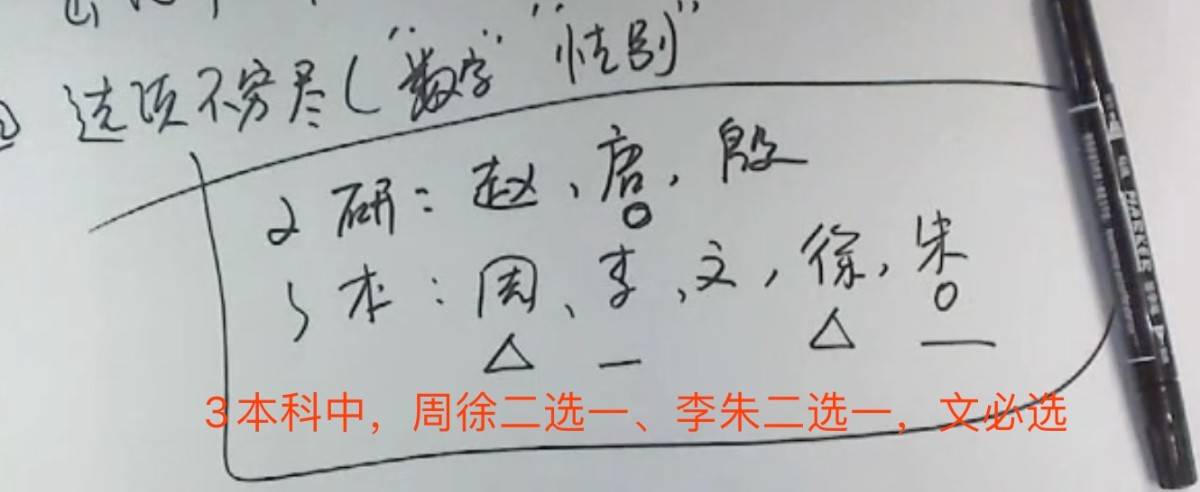 选项不穷尽("数字" "性别"
2研：赵、唐、殷
3本：周、李、文，徐，朱
3本科中，周徐二选一、李朱二选一，文必选